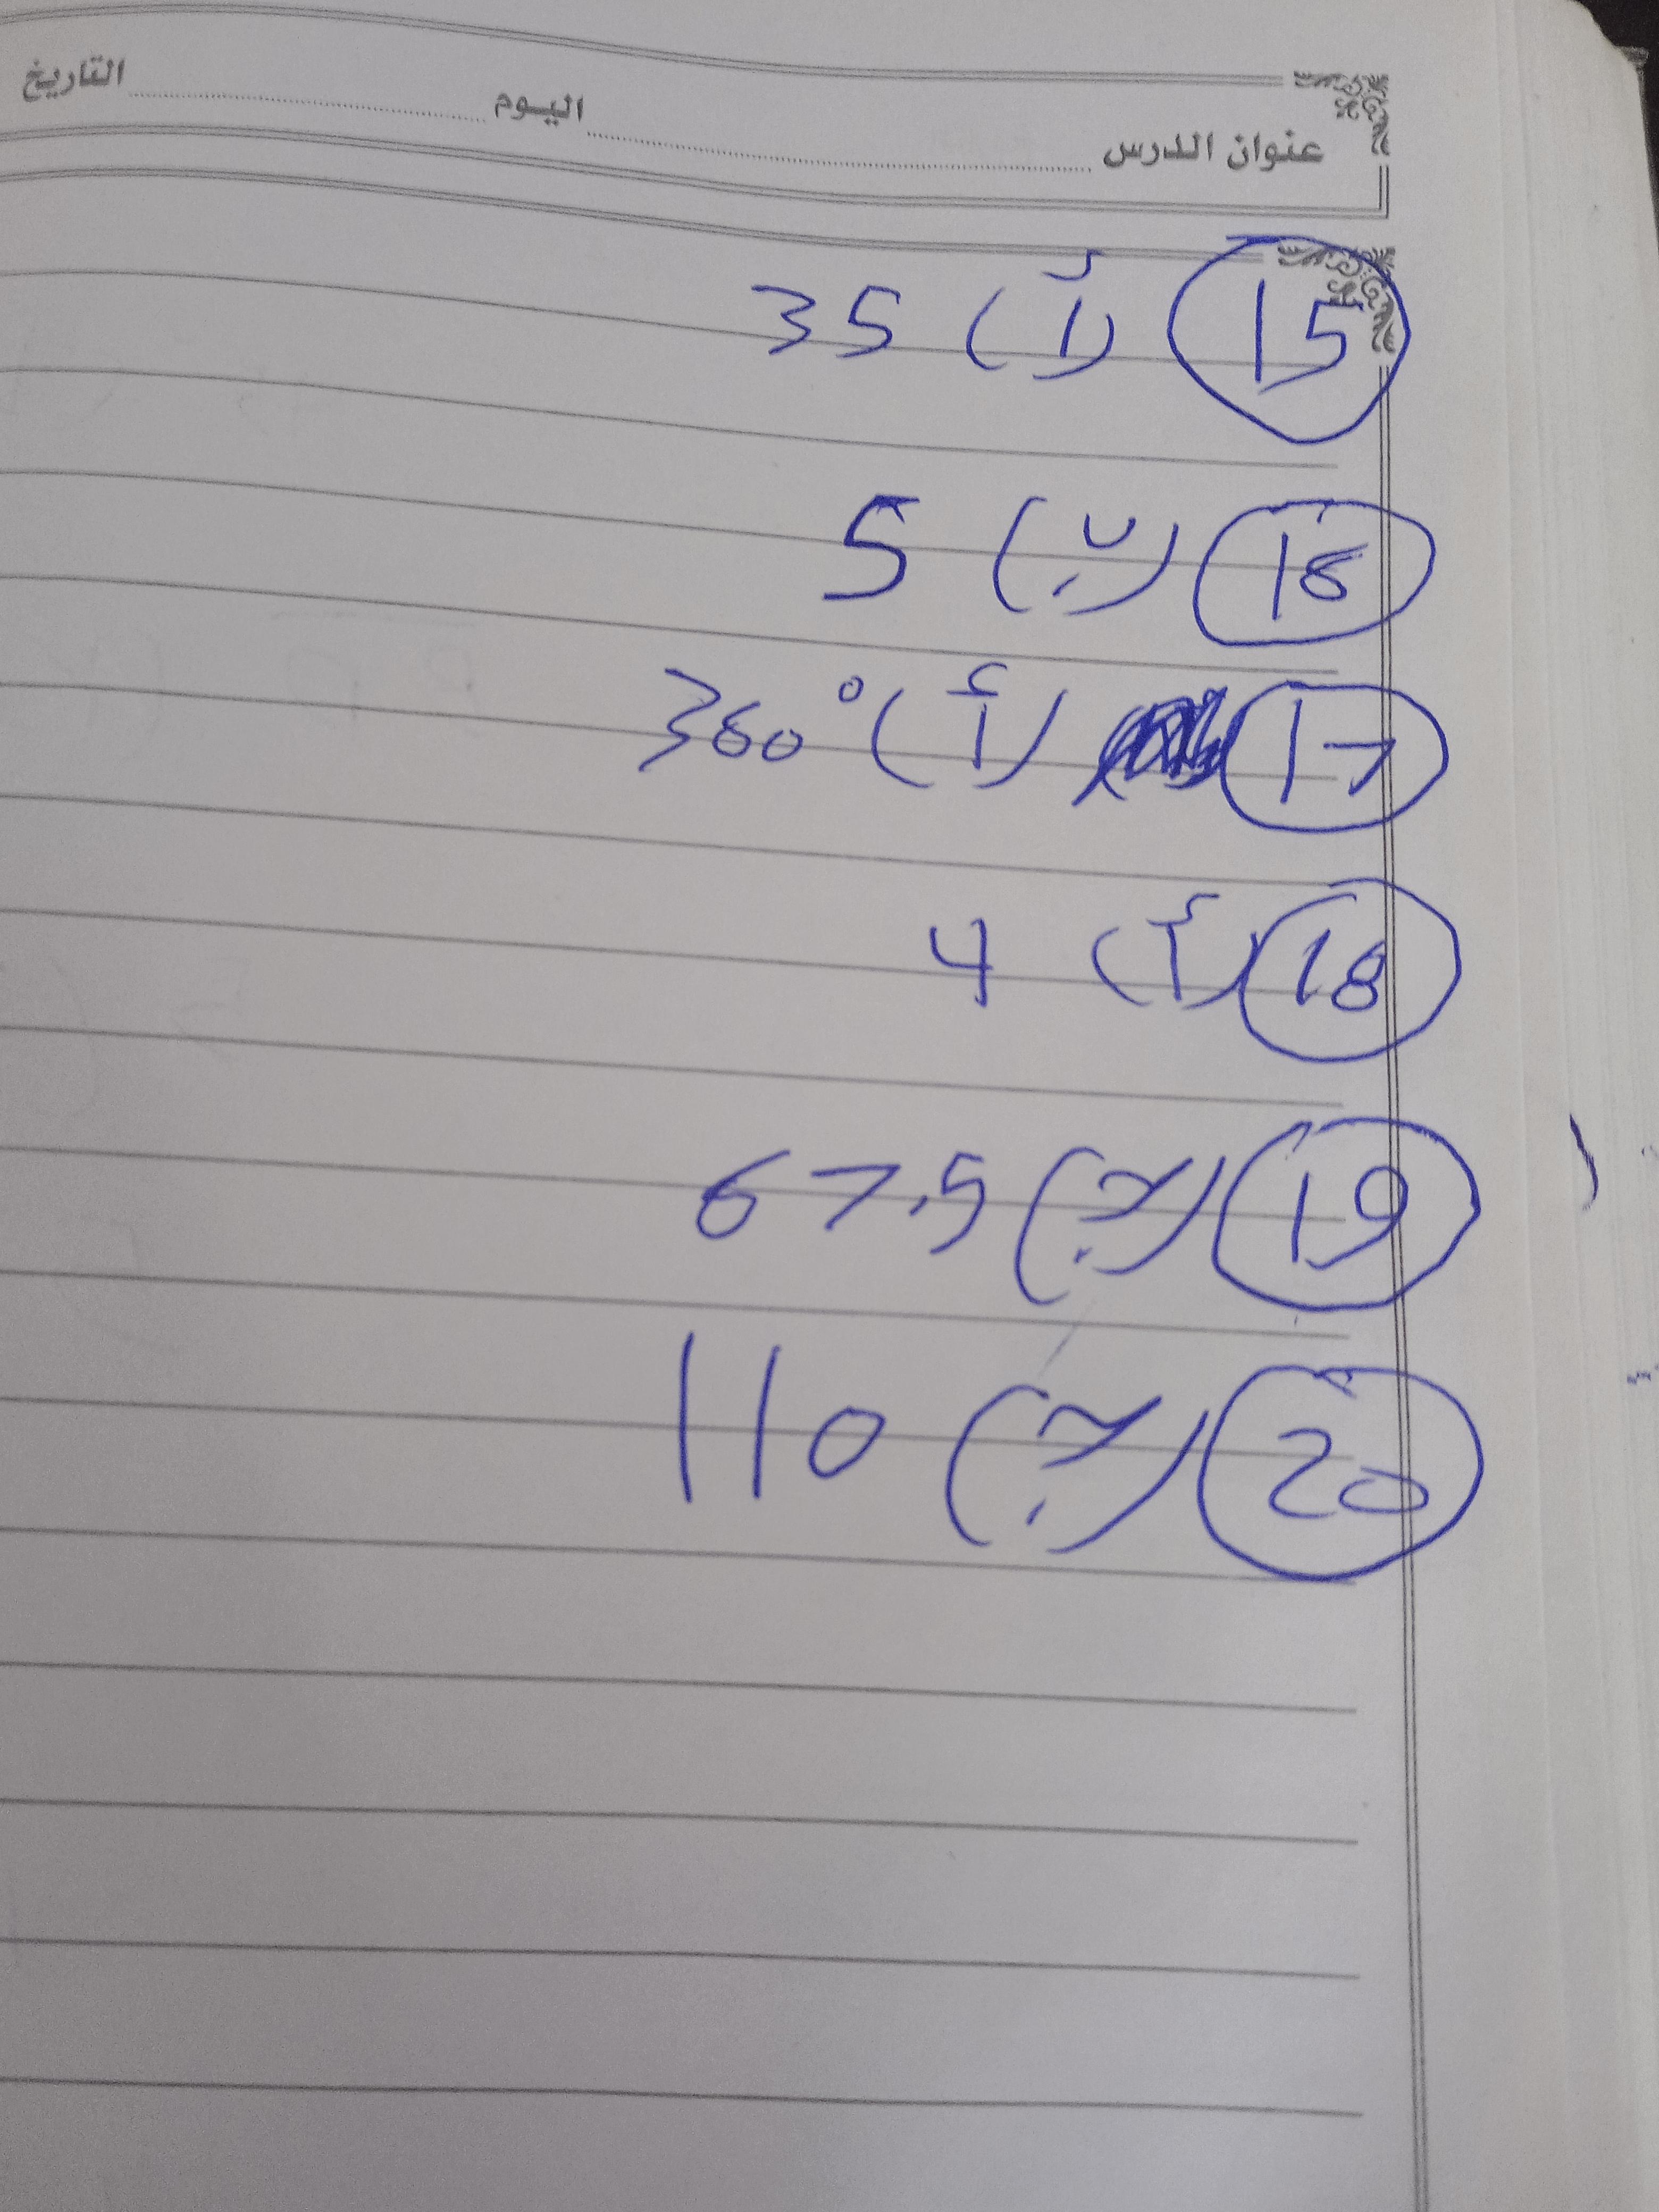 عنوان الدرس اليوم التاريخ
15 (أ) 35
16 (ب) 5
17 (أ) 360°
18 (أ) 4
19 (ج) 67.5
20 (ج) 110